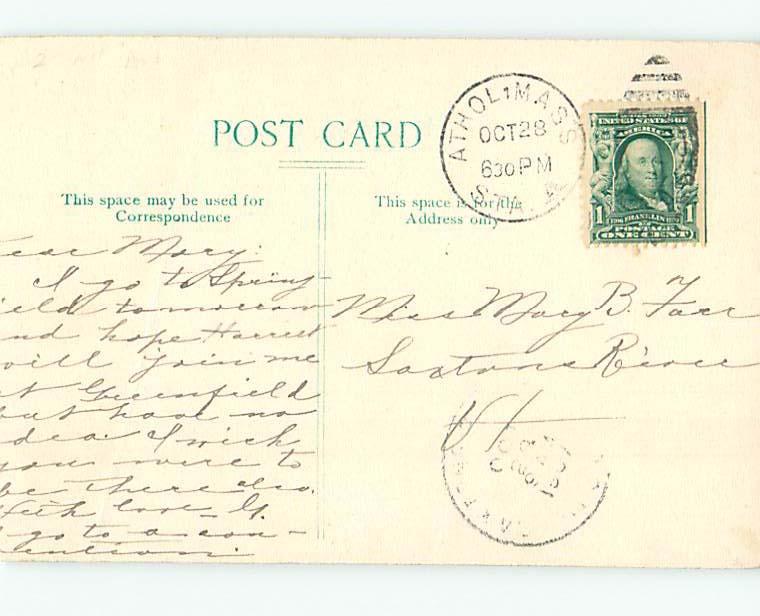 POST CARD
ATHOL MASS
OCT 28
630 PM
STA.
UNITED STATES OF
AMERICA
1 FRANKLIN 1
POSTAGE
ONE CENT
This space may be used for
Correspondence
This space is for the
Address only
ear Mary:
I go to Spring-
ield tomorrow
nd hope Harriet
will join me
at Greenfield
but have no
dea. I wish
you were to
be there also.
With love - G.
I go to a con-
vention.
Miss Mary B. Farr
Saxtons River
Vt